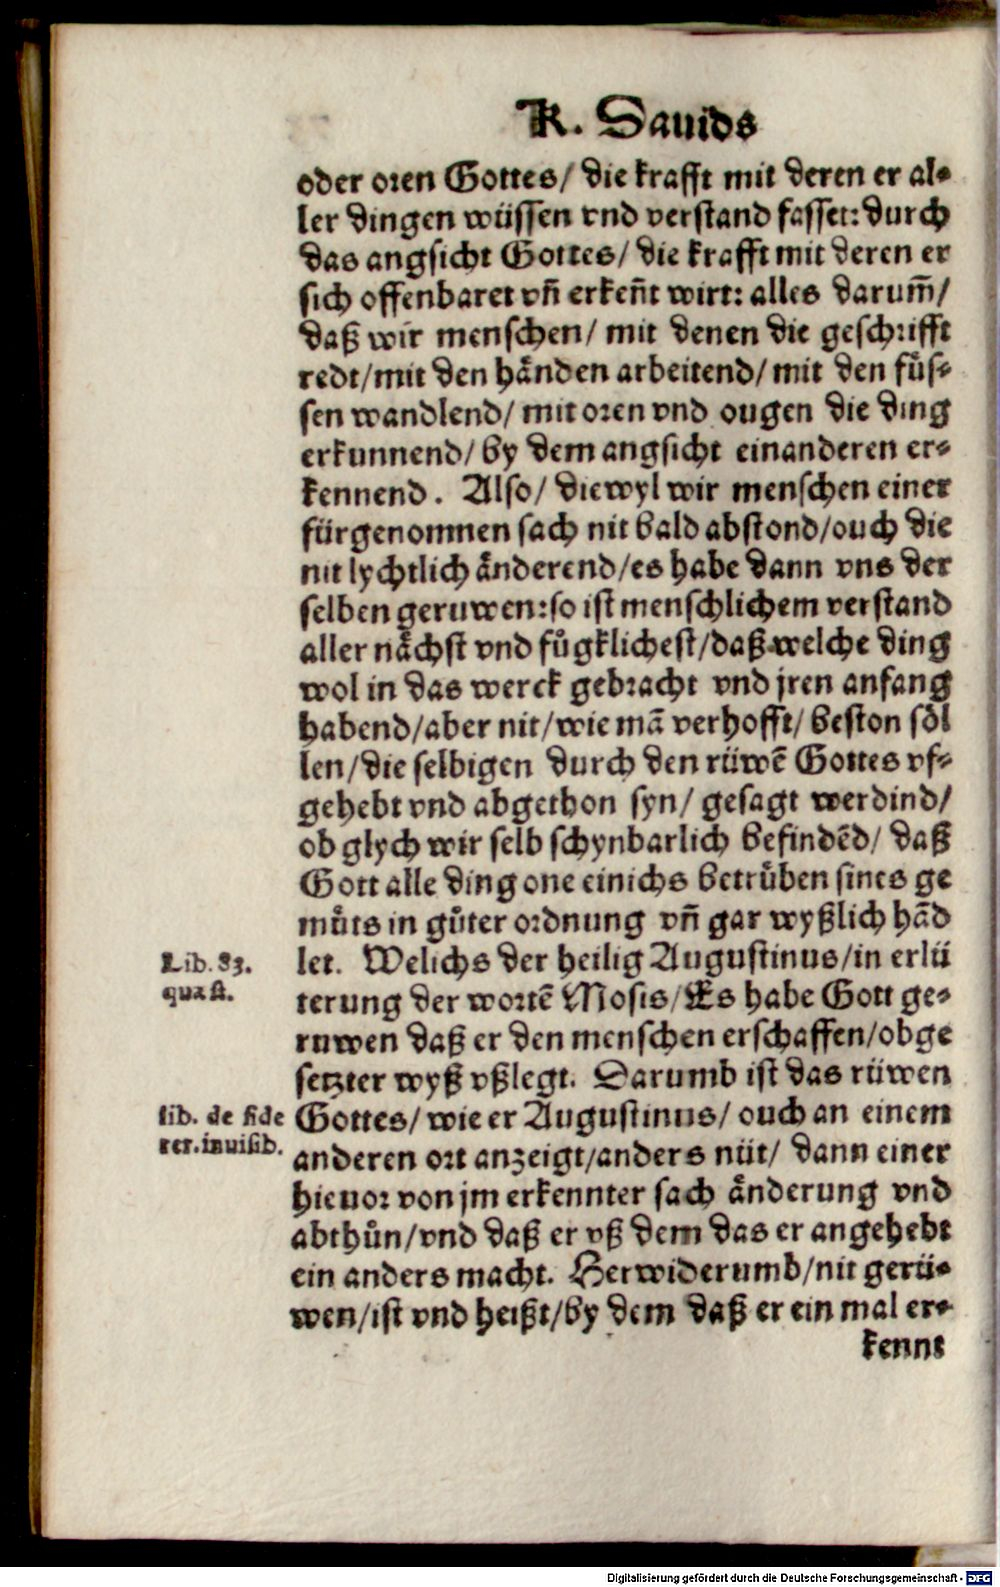 K. Dauids
oder oren Gottes/ die krafft mit deren er al-
ler dingen wüssen vnd verstand fasset: durch
das angsicht Gottes/ die krafft mit deren er
sich offenbaret vñ erkeñt wirt: alles darum̃/
daß wir menschen/ mit denen die geschrifft
redt/mit den hånden arbeitend/ mit den fůs-
sen wandlend/ mit oren vnd ougen die ding
erkunnend/ by dem angsicht einanderen er-
kennend. Also/ diewyl wir menschen einer
fürgenomnen sach nit bald abstond/ouch die
nit lychtlich ånderend/es habe dann vns der
selben geruwen: so ist menschlichem verstand
aller nåchst vnd fůgklichest/daß welche ding
wol in das werck gebracht vnd jren anfang
habend/aber nit/wie mã verhofft/ beston söl
len/die selbigen durch den rüwẽ Gottes vf-
gehebt vnd abgethon syn/ gesagt werdind/
ob glych wir selb schynbarlich befindẽd/ daß
Gott alle ding one einichs betrüben sines ge
můts in gůter ordnung vñ gar wyßlich hãd
Lib. 83.
quæst.
let. Welichs der heilig Augustinus/in erlü
terung der wortẽ Mosis/Es habe Gott ge-
ruwen daß er den menschen erschaffen/obge
setzter wyß vßlegt. Darumb ist das rüwen
lib. de fide
rer. inuisib.
Gottes/ wie er Augustinus/ ouch an einem
anderen ort anzeigt/anders nüt/ dann einer
hieuor von jm erkennter sach ånderung vnd
abthůn/vnd daß er vß dem das er angehebt
ein anders macht. Herwiderumb/nit gerü-
wen/ist vnd heißt/by dem daß er ein mal er-
kennt
Digitalisierung gefördert durch die Deutsche Forschungsgemeinschaft - DFG